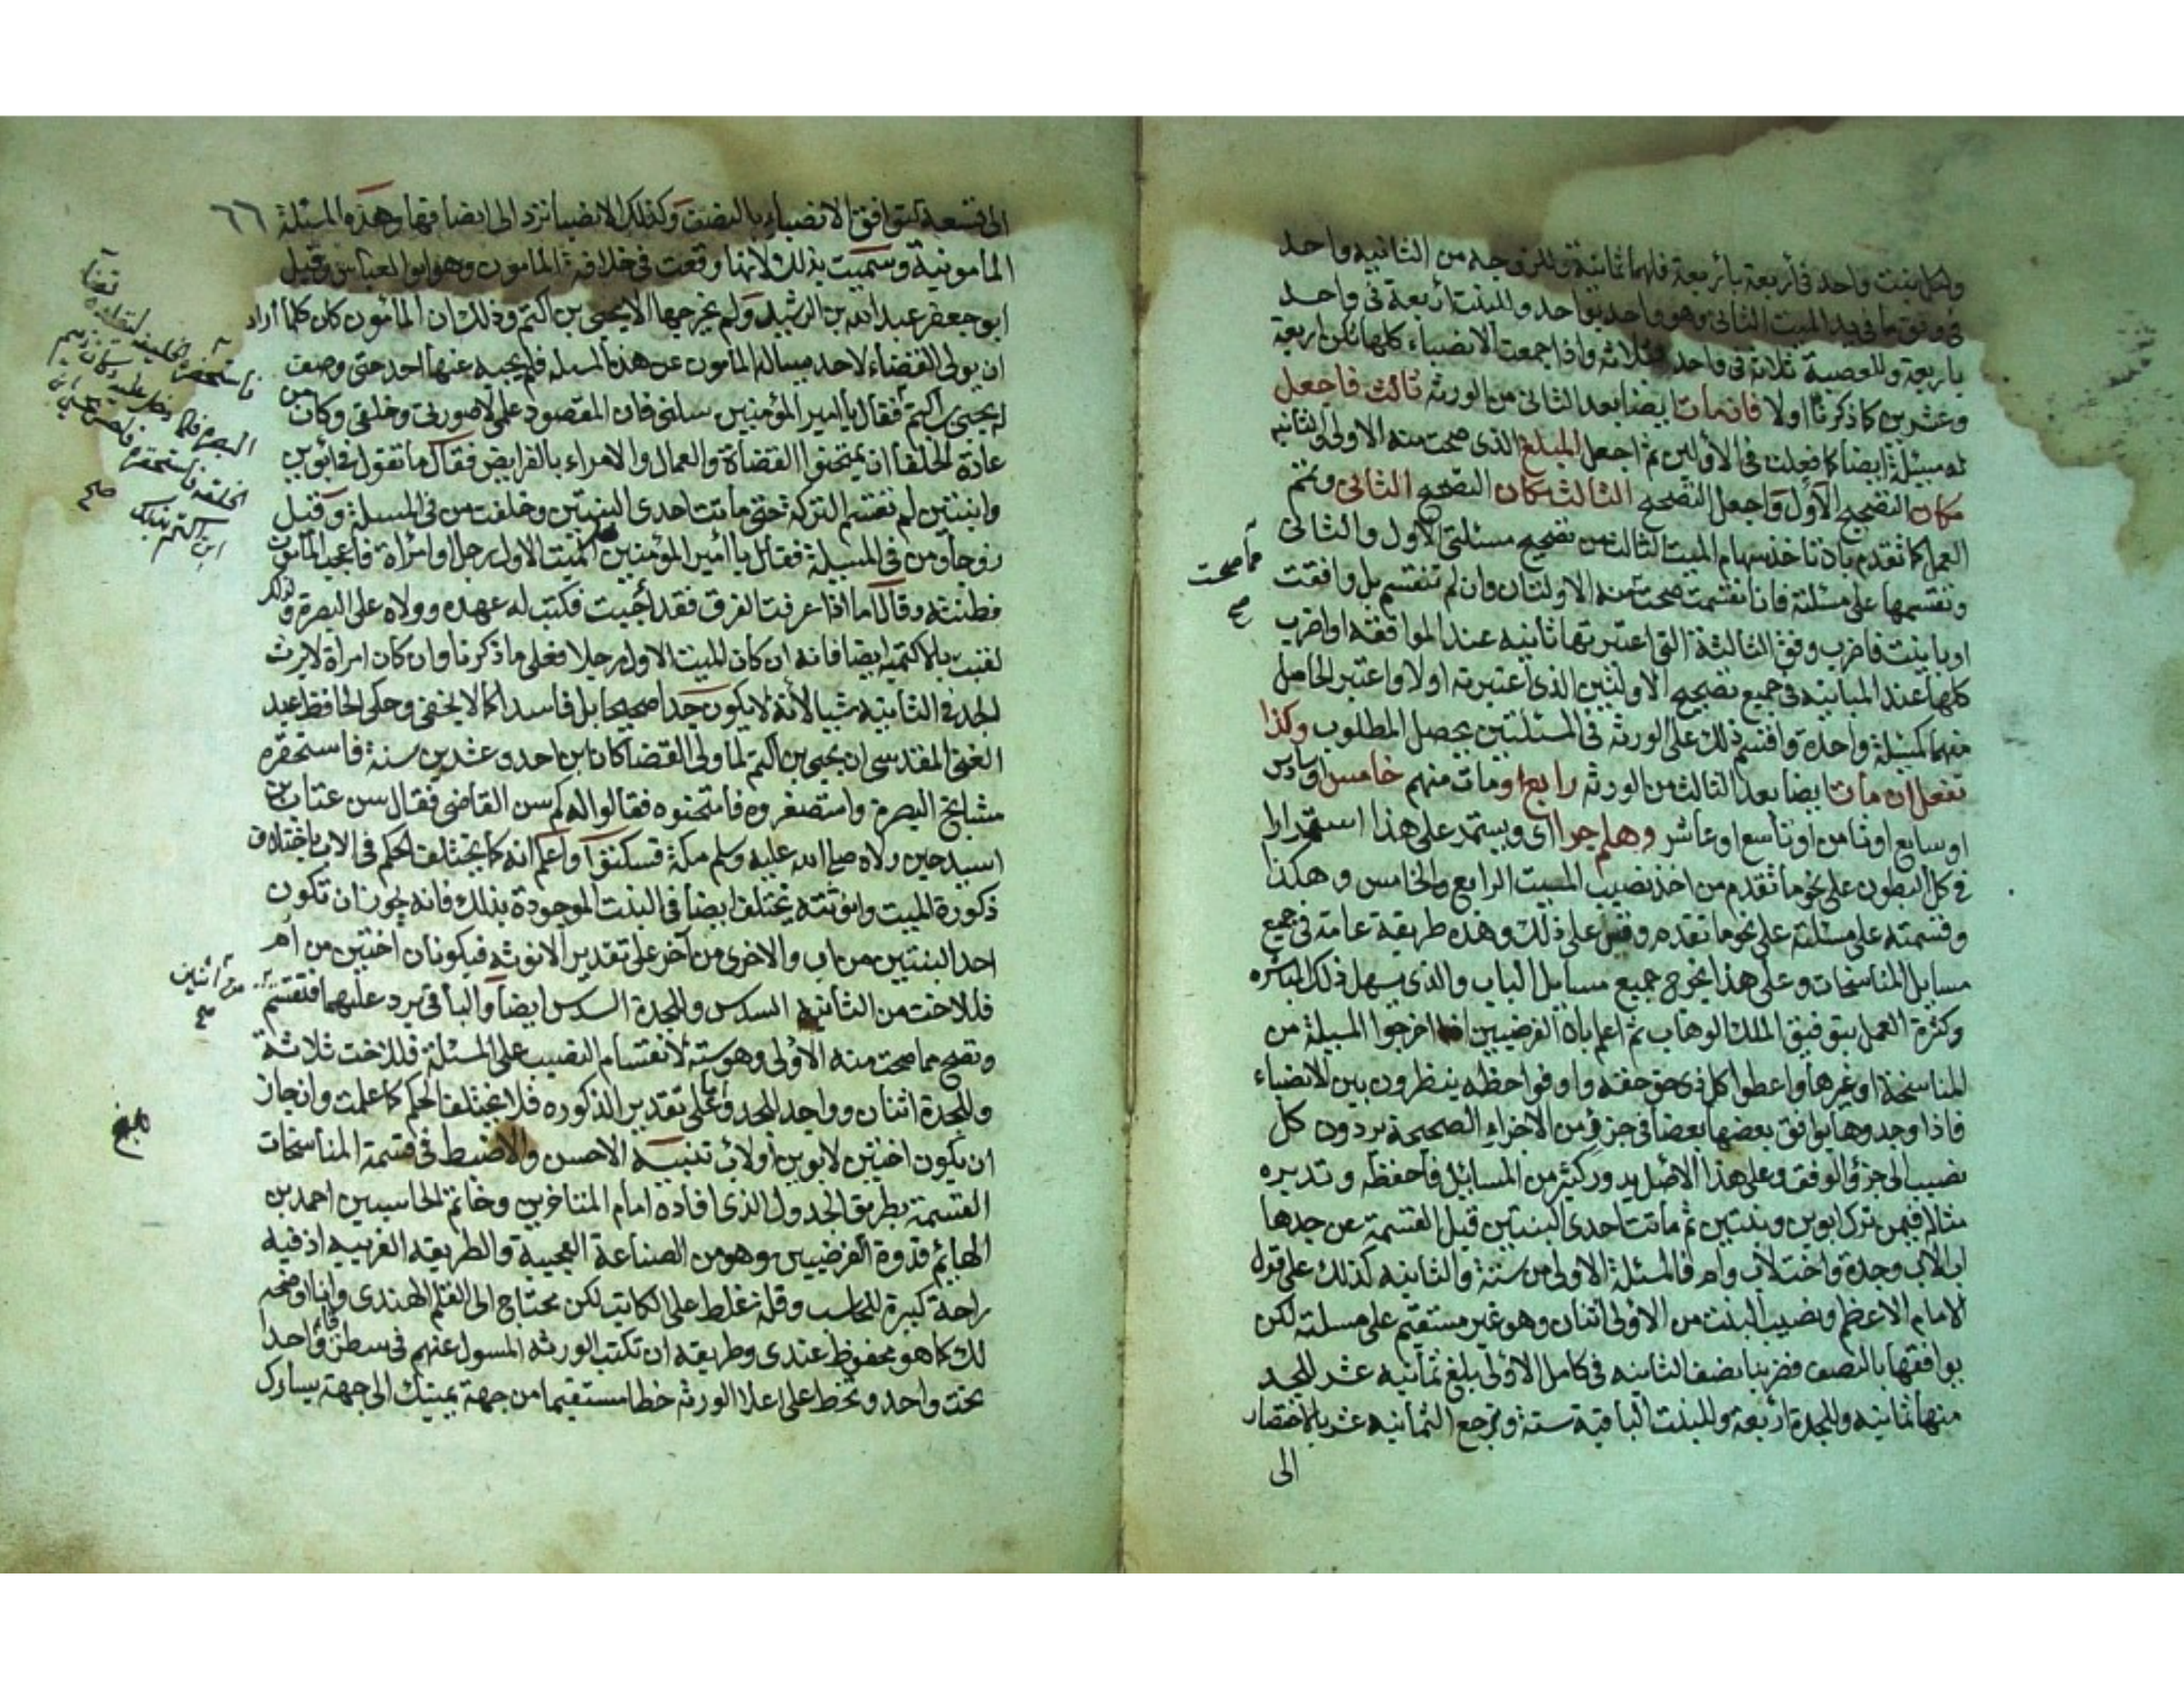 ولكل بنت واحد في أربعة بأربعة فلهما ثمانية وللزوجة من الثانية واحد
في وفق ما في يد الميت الثاني وهو واحد بواحد وللبنت أربعة في واحد
بأربعة وللعصبة ثلاثة في واحد بثلاثة وإذا جمعت الانصباء كلها تكن اربعة
وعشرين كما ذكرنا اولا فان مات ايضا بعد الثاني من الورثة ثالث فاجعل
له مسئلة ايضا كما فعلت في الأولين ثم اجعل المبلغ الذي صحت منه الاولى والثانيه
مكان التصحيح الأول واجعل التصحيح الثالث مكان التصحيح الثاني وتمم
العمل كما تقدم بان تاخذ سهام الميت الثالث من تصحيح مسئلتي الأول والثاني
وتقسمها على مسئلته فان انقسمت صحت منه الاولتان وان لم تنقسم بل وافقت
مما صحت
صح
او باينت فاضرب وفق الثالثة التي اعتبرتها ثانيه عند الموافقه او اضرب
كلها عند المباينه في جميع تصحيح الاولتين الذي اعتبرته اولا واعتبر الحاصل
منهما كمسئلة واحدة واقسم ذلك على الورثه في المسئلتين يحصل المطلوب وكذا
تفعل ان مات ايضا بعد الثالث من الورثه رابع او مات منهم خامس او سادس
او سابع او ثامن او تاسع او عاشر وهلم جرا اي ويستمر على هذا استمرارا
في كل البطون على نحو ما تقدم من اخذ نصيب الميت الرابع والخامس وهكذا
وقسمته على مسئلته على نحو ما تقدم وقس على ذلك وهذه طريقة عامة في جميع
مسايل المناسخات وعلى هذا يخرج جميع مسايل الباب والذي يسهل ذلك المباشره
وكثرة العمل بتوفيق الملك الوهاب ثم اعلم بان الفرضيين اذا اخرجوا المسيلة من
المناسخة او غيرها واعطوا كل ذي حق حقه واوفوا حظه ينظرون بين الانصباء
فاذا وجدوها يوافق بعضها بعضا في جزؤ من الاجزاء الصحيحة يردون كل
نصيب الى جزؤ الوفق وعلى هذا الاصل يدور كثير من المسائل فاحفظه وتدبره
مثاله فيمن ترك ابوين وبنتين ثم ماتت احدى البنتين قبل القسمة عن جدها
اب الاب وجدة واخت لاب وام فالمسئلة الاولى من ستة والثانيه كذلك على قول
الامام الاعظم ونصيب البنت من الاولى اثنان وهو غير مستقيم على مسئلته لكن
يوافقها بالنصف فضربنا نصف الثانيه في كامل الاولى بلغ ثمانيه عشر للجد
منها ثمانيه وللجدة اربعة وللبنت الباقية ستة وترجع الثمانيه عشر بالاختصار
الى
٦٦
الى تسعة لتوافق الانصباء بالنصف وكذلك الانصبا ترد الى انصافها وهذه المسئلة
المامونية وسميت بذلك لانها وقعت في خلافة المامون وهو ابو العباس وقيل
ابو جعفر عبد الله بن الرشيد ولم يخرجها الا يحيى بن اكتم وذلك ان المأمون كان كلما أراد
ان يولى القضاء لاحد يساله المأمون عن هذه المسله فلم يجبه عنها احد حتى وصف
له يحيى بن اكتم فقال يا امير المؤمنين سلني فان المقصود علمي لا صورتي وخلقي وكان من
عادة الخلفا أن يمتحنوا القضاة والعمال والامراء بالفرايض فقال ما تقول في ابوين
وابنتين لم تقسم التركة حتى ماتت احدى البنتين وخلفت من في المسيلة وقيل
زوجا ومن في المسيلة فقال يا أمير المؤمنين الميت الاول رجل او امرأة فأعجب المأمون
فطنته وقال له اما اذا عرفت الفرق فقد أجبت فكتب له عهده وولاه على البصرة ولذلك
لقبت بالاكتميه ايضا فانه ان كان الميت الاول رجلا فعلى ما ذكرنا وان كان امراة لا يرث
الجد في الثانيه شيا لأنه لا يكون جدا صحيحا بل فاسدا كما لا يخفى وحكى الحافظ عبد
الغني المقدسي ان يحيى بن اكتم لما ولى القضا كان ابن احد وعشرين سنة فاستحقره
مشايخ البصرة واستصغروه فامتحنوه فقالوا له كم سن القاضي فقال سن عتاب بن
اسيد حين ولاه صلى الله عليه وسلم مكة فسكتوا واعلم انه كما يختلف الحكم في الاب باختلاف
ذكورة الميت وانوثته يختلف ايضا في البنت الموجودة بذلك فانه يجوز ان تكون
احد البنتين من اب والاخرى من آخر على تقدير الانوثه فيكونان اختين من ام
فللاخت من الثانيه السدس وللجدة السدس ايضا والباقي يرد عليهما فتقسم
من اثنين
صح
وتصح مما صحت منه الاولى وهو سته لانقسام النصيب على المسئلة فللاخت ثلاثة
وللجدة اثنان وواحد للجد واما على تقدير الذكوره فلا يختلف الحكم كما علمت وان جاز
ان يكون اختين لابوين او لاب تنبيه الاحسن والاضبط في قسمة المناسخات
القسمة بطريق الجدول الذي افاده امام المتاخرين وخاتم الحاسبين احمد بن
الهائم قدوة الفرضيين وهو من الصناعة العجيبة والطريقه الغريبه اذ فيه
راحة كبيرة للحاسب وقلة غلط على الكاتب لكن يحتاج الى القلم الهندي وانا اوضحه
لك كما هو محفوظ عندي وطريقه ان تكتب الورثه المسول عنهم في سطر واحدا
تحت واحد وتخط على اعلا الورثه خطا مستقيما من جهة يمينك الى جهة يسارك